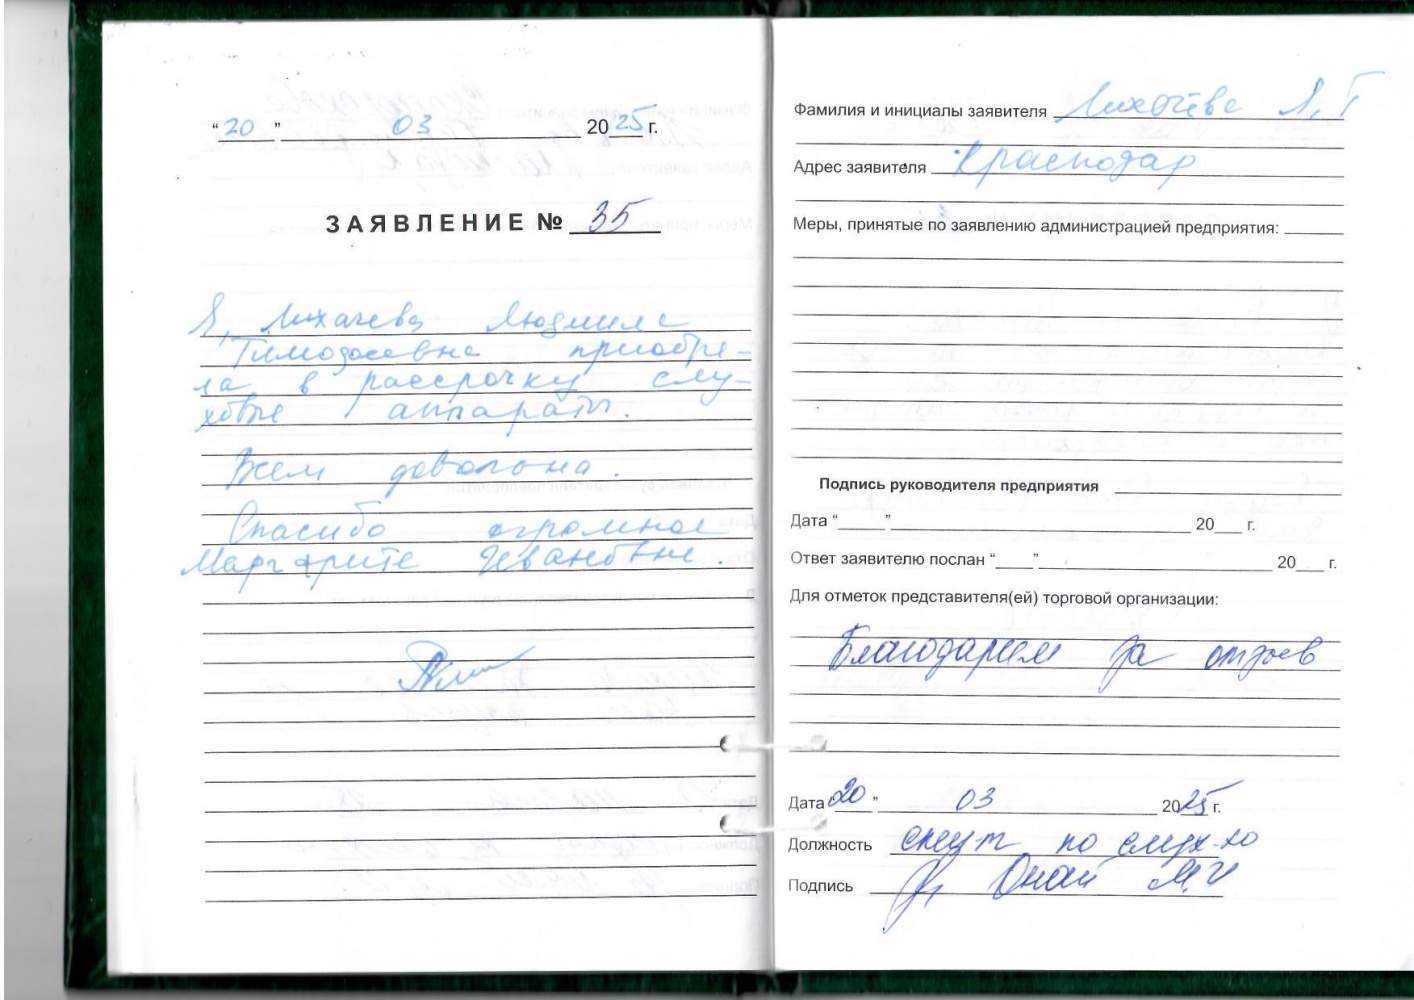 “20” 03 2025 г.
ЗАЯВЛЕНИЕ № 35
Я, Лихачева Людмила
Тимофеевна приобре-
ла в рассрочку слу-
ховые аппараты.
Всем довольна.
Спасибо огромное
Маргарите Ивановне.
Фамилия и инициалы заявителя Лихачёва Л.Т
Адрес заявителя Краснодар
Меры, принятые по заявлению администрацией предприятия:
Подпись руководителя предприятия
Дата “ ” 20 г.
Ответ заявителю послан “ ” 20 г.
Для отметок представителя(ей) торговой организации:
Благодарим за отзыв
Дата “20” 03 2025 г.
Должность по слух-ю
Подпись Онай М.И